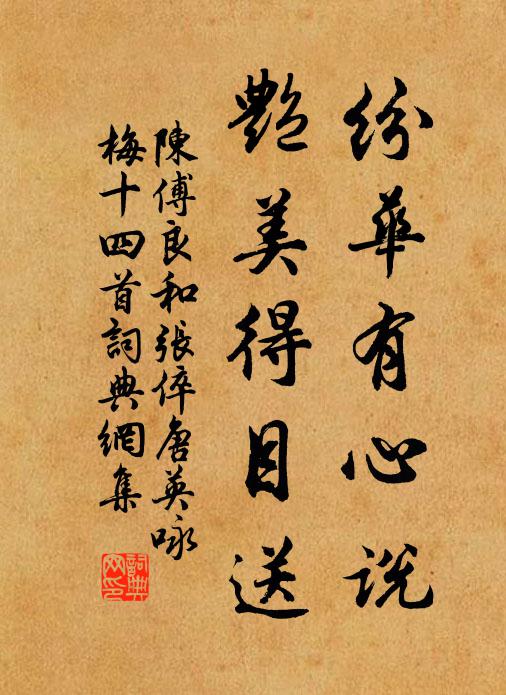 紛華有心説
艷美得目送
陳傅良和張倅唐英咏
梅十四首詞典網集
詞典网印